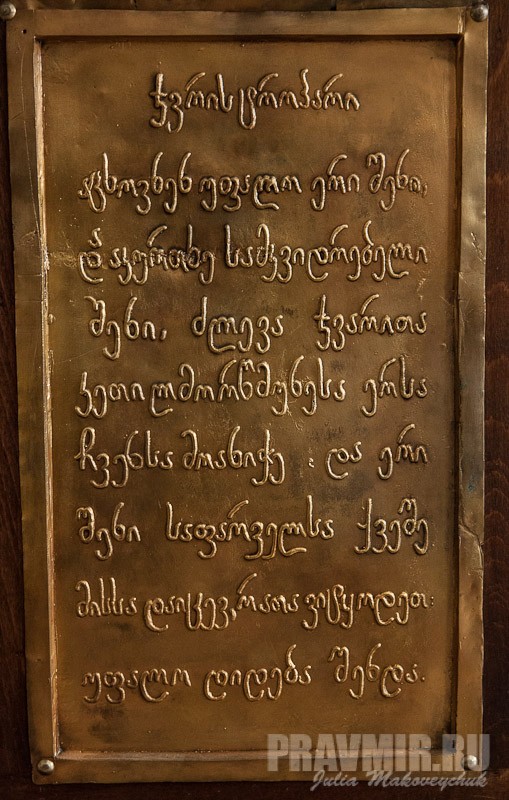 ჭვრის ტროპარი
აცხოვნენ უფალო ერი შენი,
და აკურთხე სამკვიდრებელი
შენი, ძლევა ჭვარითა
კეთილმორწმუნესა ერსა
ჩვენსა მოანიჭე : და ერი
შენი საფარველსა ქვეშე
მისსა დაიცევ, რათა ვიტყოდეთ:
უფალო დიდება შენდა.
PRAVMIR.RU
Julia Makoveychuk